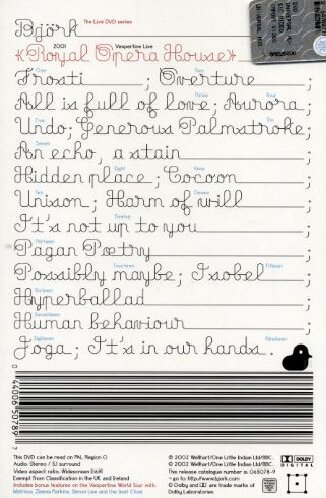 Björk The (Live DVD series
2001 Vespertine Live
«Royal Opera House»
One Two
Frosti ; Overture ;
Three Four
All is full of love ; Aurora ;
Five Six
Undo ; Generous Palmstroke ;
Seven
An echo, a stain ;
Eight Nine
Hidden place ; Cocoon ;
Ten Eleven
Unison ; Harm of will ;
Twelve
It's not up to you ;
Thirteen
Pagan Poetry ;
Fourteen Fifteen
Possibly maybe ; Isobel ;
Sixteen
Hyperballad ;
Seventeen
Human behaviour ;
Eighteen Nineteen
Joga ; It's in our hands.
This DVD can be read on PAL Region 0
Audio: Stereo / 5.1 surround
Video aspect ratio: Widescreen
Exempt from Classification in the U.K. and Ireland
Includes bonus features on the Vespertine World Tour with:
Matmos, Zeena Parkins, Simon Lee and the Inuit Choir
© 2002 Wellhart/One Little Indian Ltd/BBC.
℗ 2002 Wellhart/One Little Indian Ltd/BBC.
This release catalogue number is 065078-9
> go to: http://www.bjork.com
© Dolby and DD are trade marks of
Dolby Laboratories
DOLBY
DIGITAL